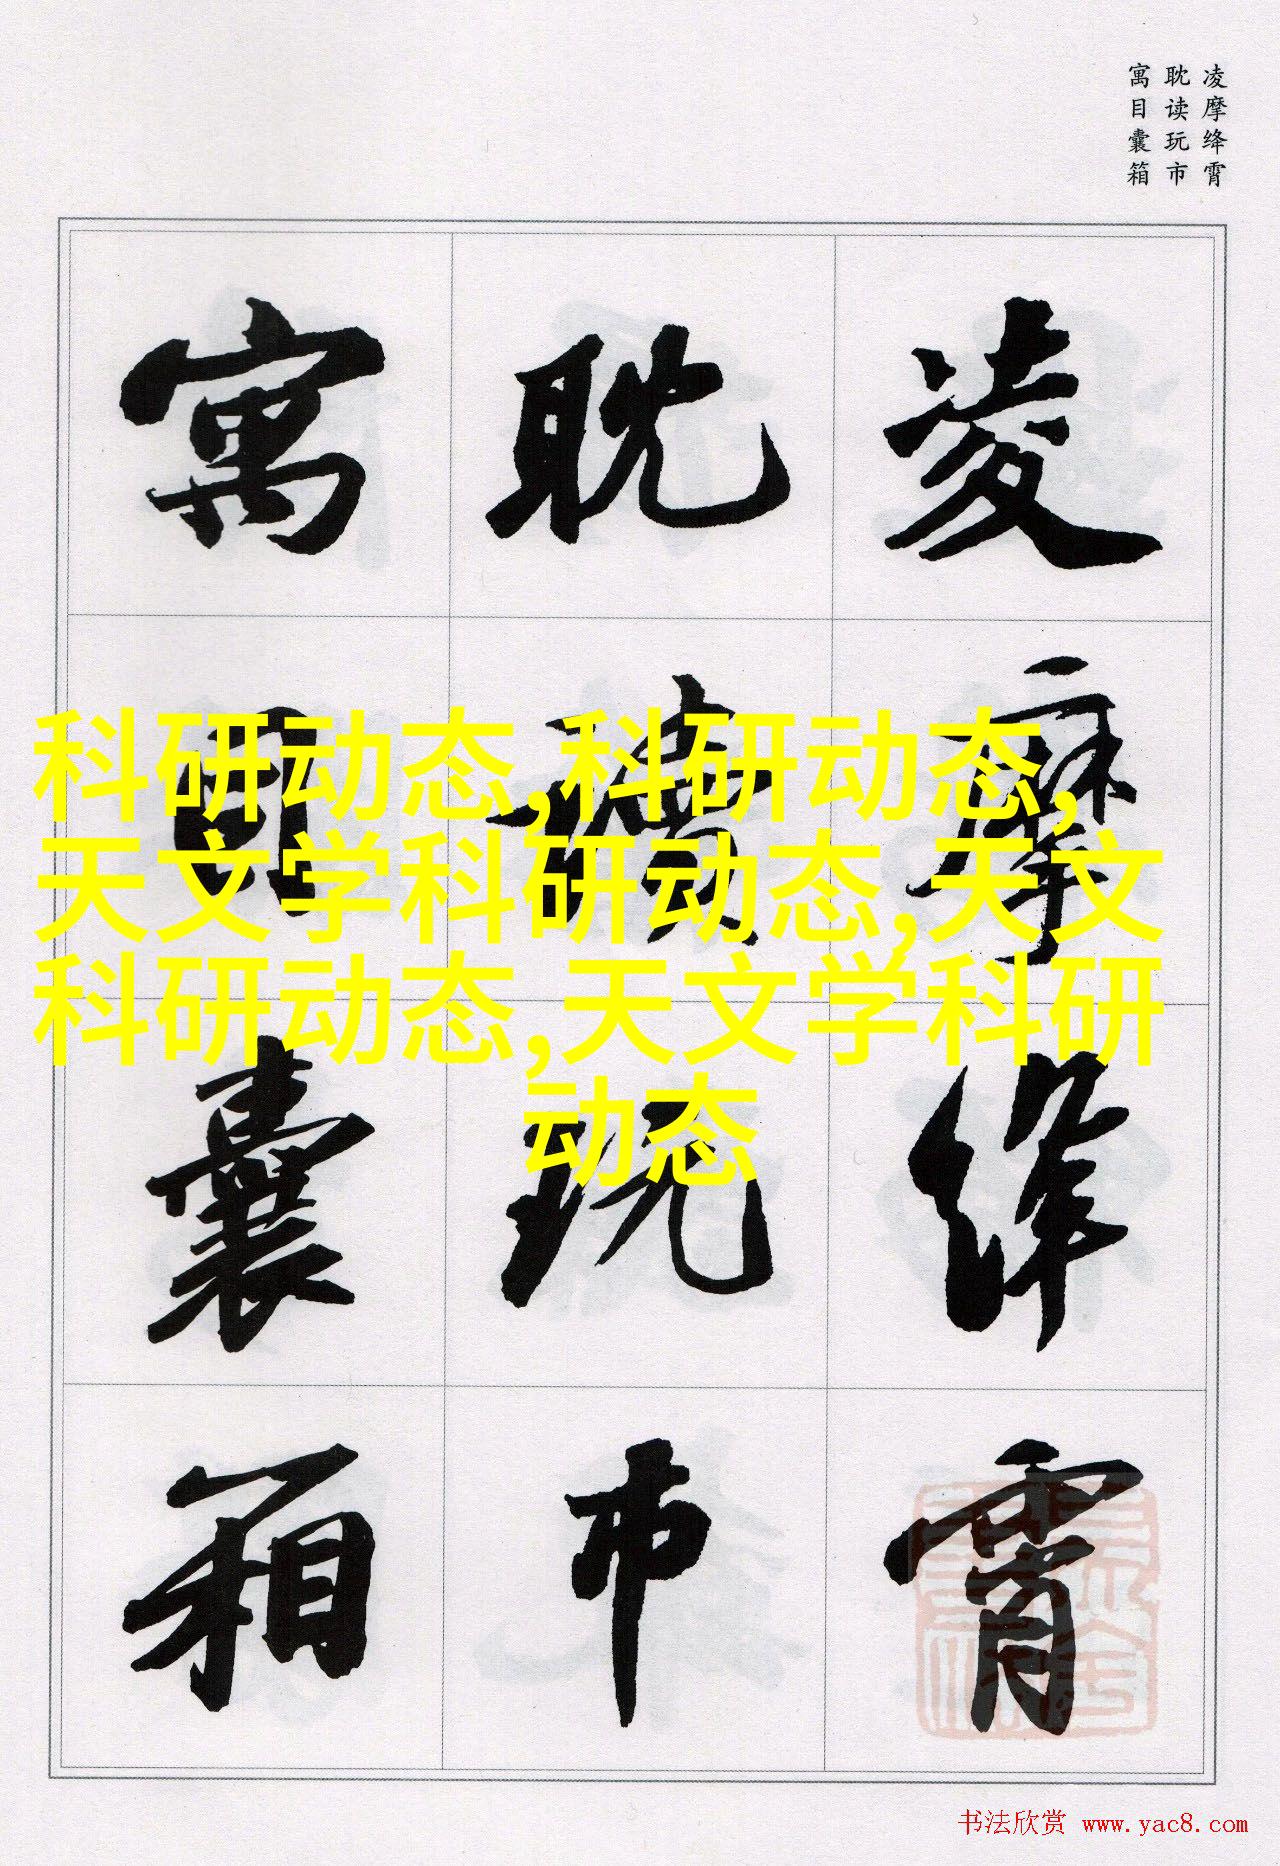 凌摩绛霄
耽读玩市
寓目囊箱
凌摩绛霄
耽讀玩市
寓目囊箱
科研动态,科研动态,
天文学科研动态,天文
科研动态,天文学科研
动态
书法欣赏 www.yac8.com